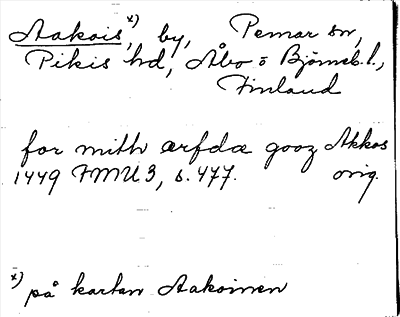 Aakois x), by, Pemar sn,
Pikis hd, Åbo o Björneb. l.,
Finland
for mith ærfdæ gooz Akkos
1449 FMU 3, s. 477. orig.
x) på kartan Aakoinen